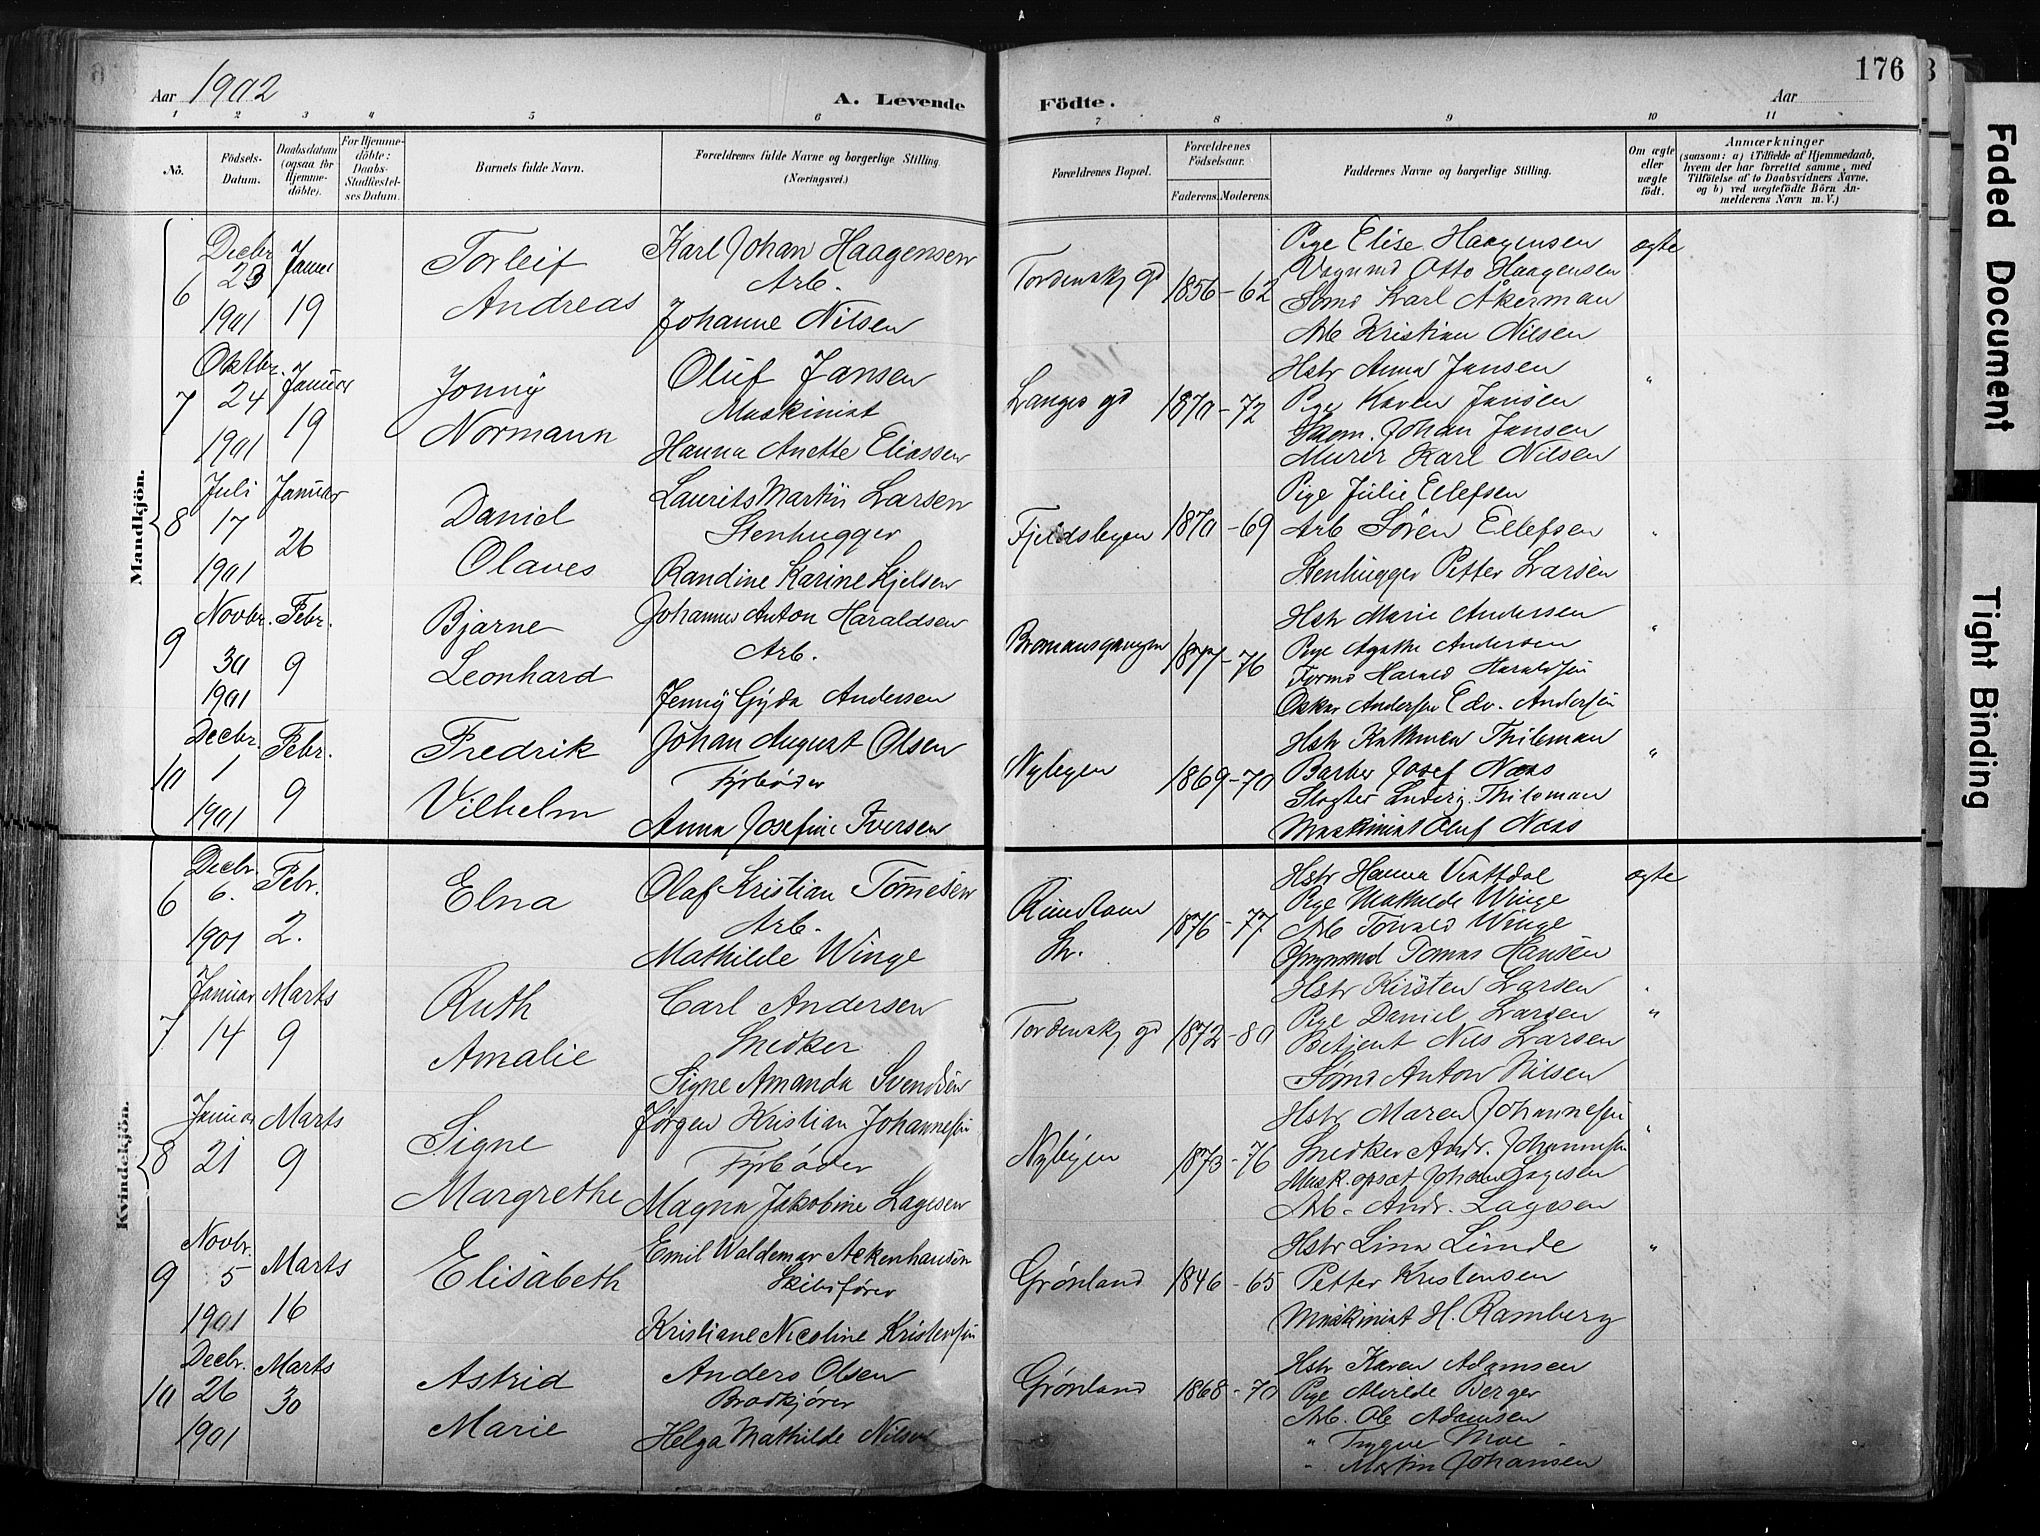 Aar 1902
A. Levende Födte.
Aar
176
1 2 3 4 5 6 7 8 9 10 11
No.
Födsels-Datum.
Daabsdatum (ogsaa for Hjemme-döbte).
For Hjemme-döbte: Daabs-Stadfæstel-ses Datum.
Barnets fulde Navn.
Forældrenes fulde Navne og borgerlige Stilling. (Næringsvei.)
Forældrenes Bopæl.
Forældrenes Födselsaar.
Faderens. Moderens.
Faddernes Navne og borgerlige Stilling.
Om ægte eller uægte födt.
Anmærkninger
(saasom: a) i Tilfælde af Hjemmedaab, hvem der har forrettet samme, med Tilföielse af to Daabsvidners Navne, og b) ved uægtefödte Börn An-melderens Navn m. V.)
Mandkjön.
6 Decbr 23 1901 Januar 19 Torleif Andreas
Karl Johan Haagensen
Arb.
Johanne Nilsen
Tordenskj gd 1856-62
Pige Elise Haagensen
Vognmd Otto Haagensen
Sømd Karl Åkerman
Arb Kristian Nilsen
ægte
7 Oktbr. 24 1901 Januar 19 Jonny Normann
Oluf Jansen
Maskinist
Hanna Anette Eliassen
Langes gd 1870-72
Hstr Anna Jansen
Pige Karen Jansen
Johan Jansen
Murer Karl Nilsen
"
8 Juli 17 1901 Januar 26 Daniel Olaves
Laurits Martin Larsen
Stenhugger
Randine Karine Kjelsen
Fjeldsbyen 1870-69
Pige Julie Ellefsen
Arb Søren Ellefsen
Stenhugger Petter Larsen
"
9 Novbr. 30 1901 Febr. 9 Bjarne Leonhard
Johannes Anton Haraldsen
Arb.
Jenny Gyda Andersen
Bromansgangen 1877-76
Hstr Marie Andersen
Pige Agathe Andersen
Formd Harald Haraldsen
Oskar Andersen Edv. Andersen
"
10 Decbr. 1 1901 Febr. 9 Fredrik Vilhelm
Johan August Olsen
Fyrbøder
Anna Josefine Iversen
Nybyen 1869-70
Hstr Kathinca Thileman
Barber Josef Næss
Slagter Ludvig Thileman
Maskinist Oluf Næss
"
Kvindekjön.
6 Decbr. 6. 1901 Febr. 2. Elna
Olaf Kristian Tomesen
Arb.
Mathilde Winge
Rundtom Str. 1876-77
Hstr Hanna
Pige Mathilde Winge
Arb Torvald Winge
Tomas Hansen
ægte
7 Januar 14 Marts 9 Ruth Amalie
Carl Andersen
Snedker
Signe Amanda Svendsen
Tordenskj gd 1872-80
Hstr Kirsten Larsen
Pige Daniel Larsen
Betjent Nils Larsen
Sømd Anton Nilsen
"
8 Januar 21 Marts 9 Signe Margrethe
Jørgen Kristian Johannesen
Fyrbøder
Magna Jakobine Lagesen
Nybyen 1873-76
Hstr Maren Johannesen
Snedker Andr. Johannesen
Mask.opsat Johan Lagesen
Arb. Andr. Lagesen
"
9 Novbr. 5 1901 Marts 16 Elisabeth
Emil Waldemar Ackenhausen
Skibsfører
Kristiane Nicoline Kristensen
Grønland 1846-65
Hstr Lina Lunde
Petter Kristensen
Maskinist H. Ramberg
"
10 Decbr. 26 1901 Marts 30 Astrid Marie
Anders Olsen
Brødkjører
Helga Mathilde Nilsen
Grønland 1868-70
Hstr Karen Adamsen
Pige Berger
Arb. Ole Adamsen
" Trygve Moe
" Martin Johansen
Faded Document
Tight Binding